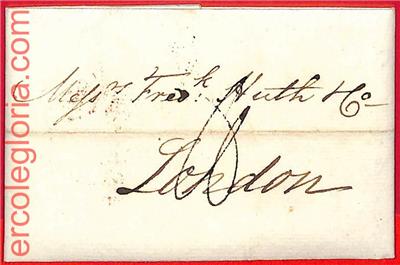 ercolegloria.com
Messrs Fredk Huth & Co
London